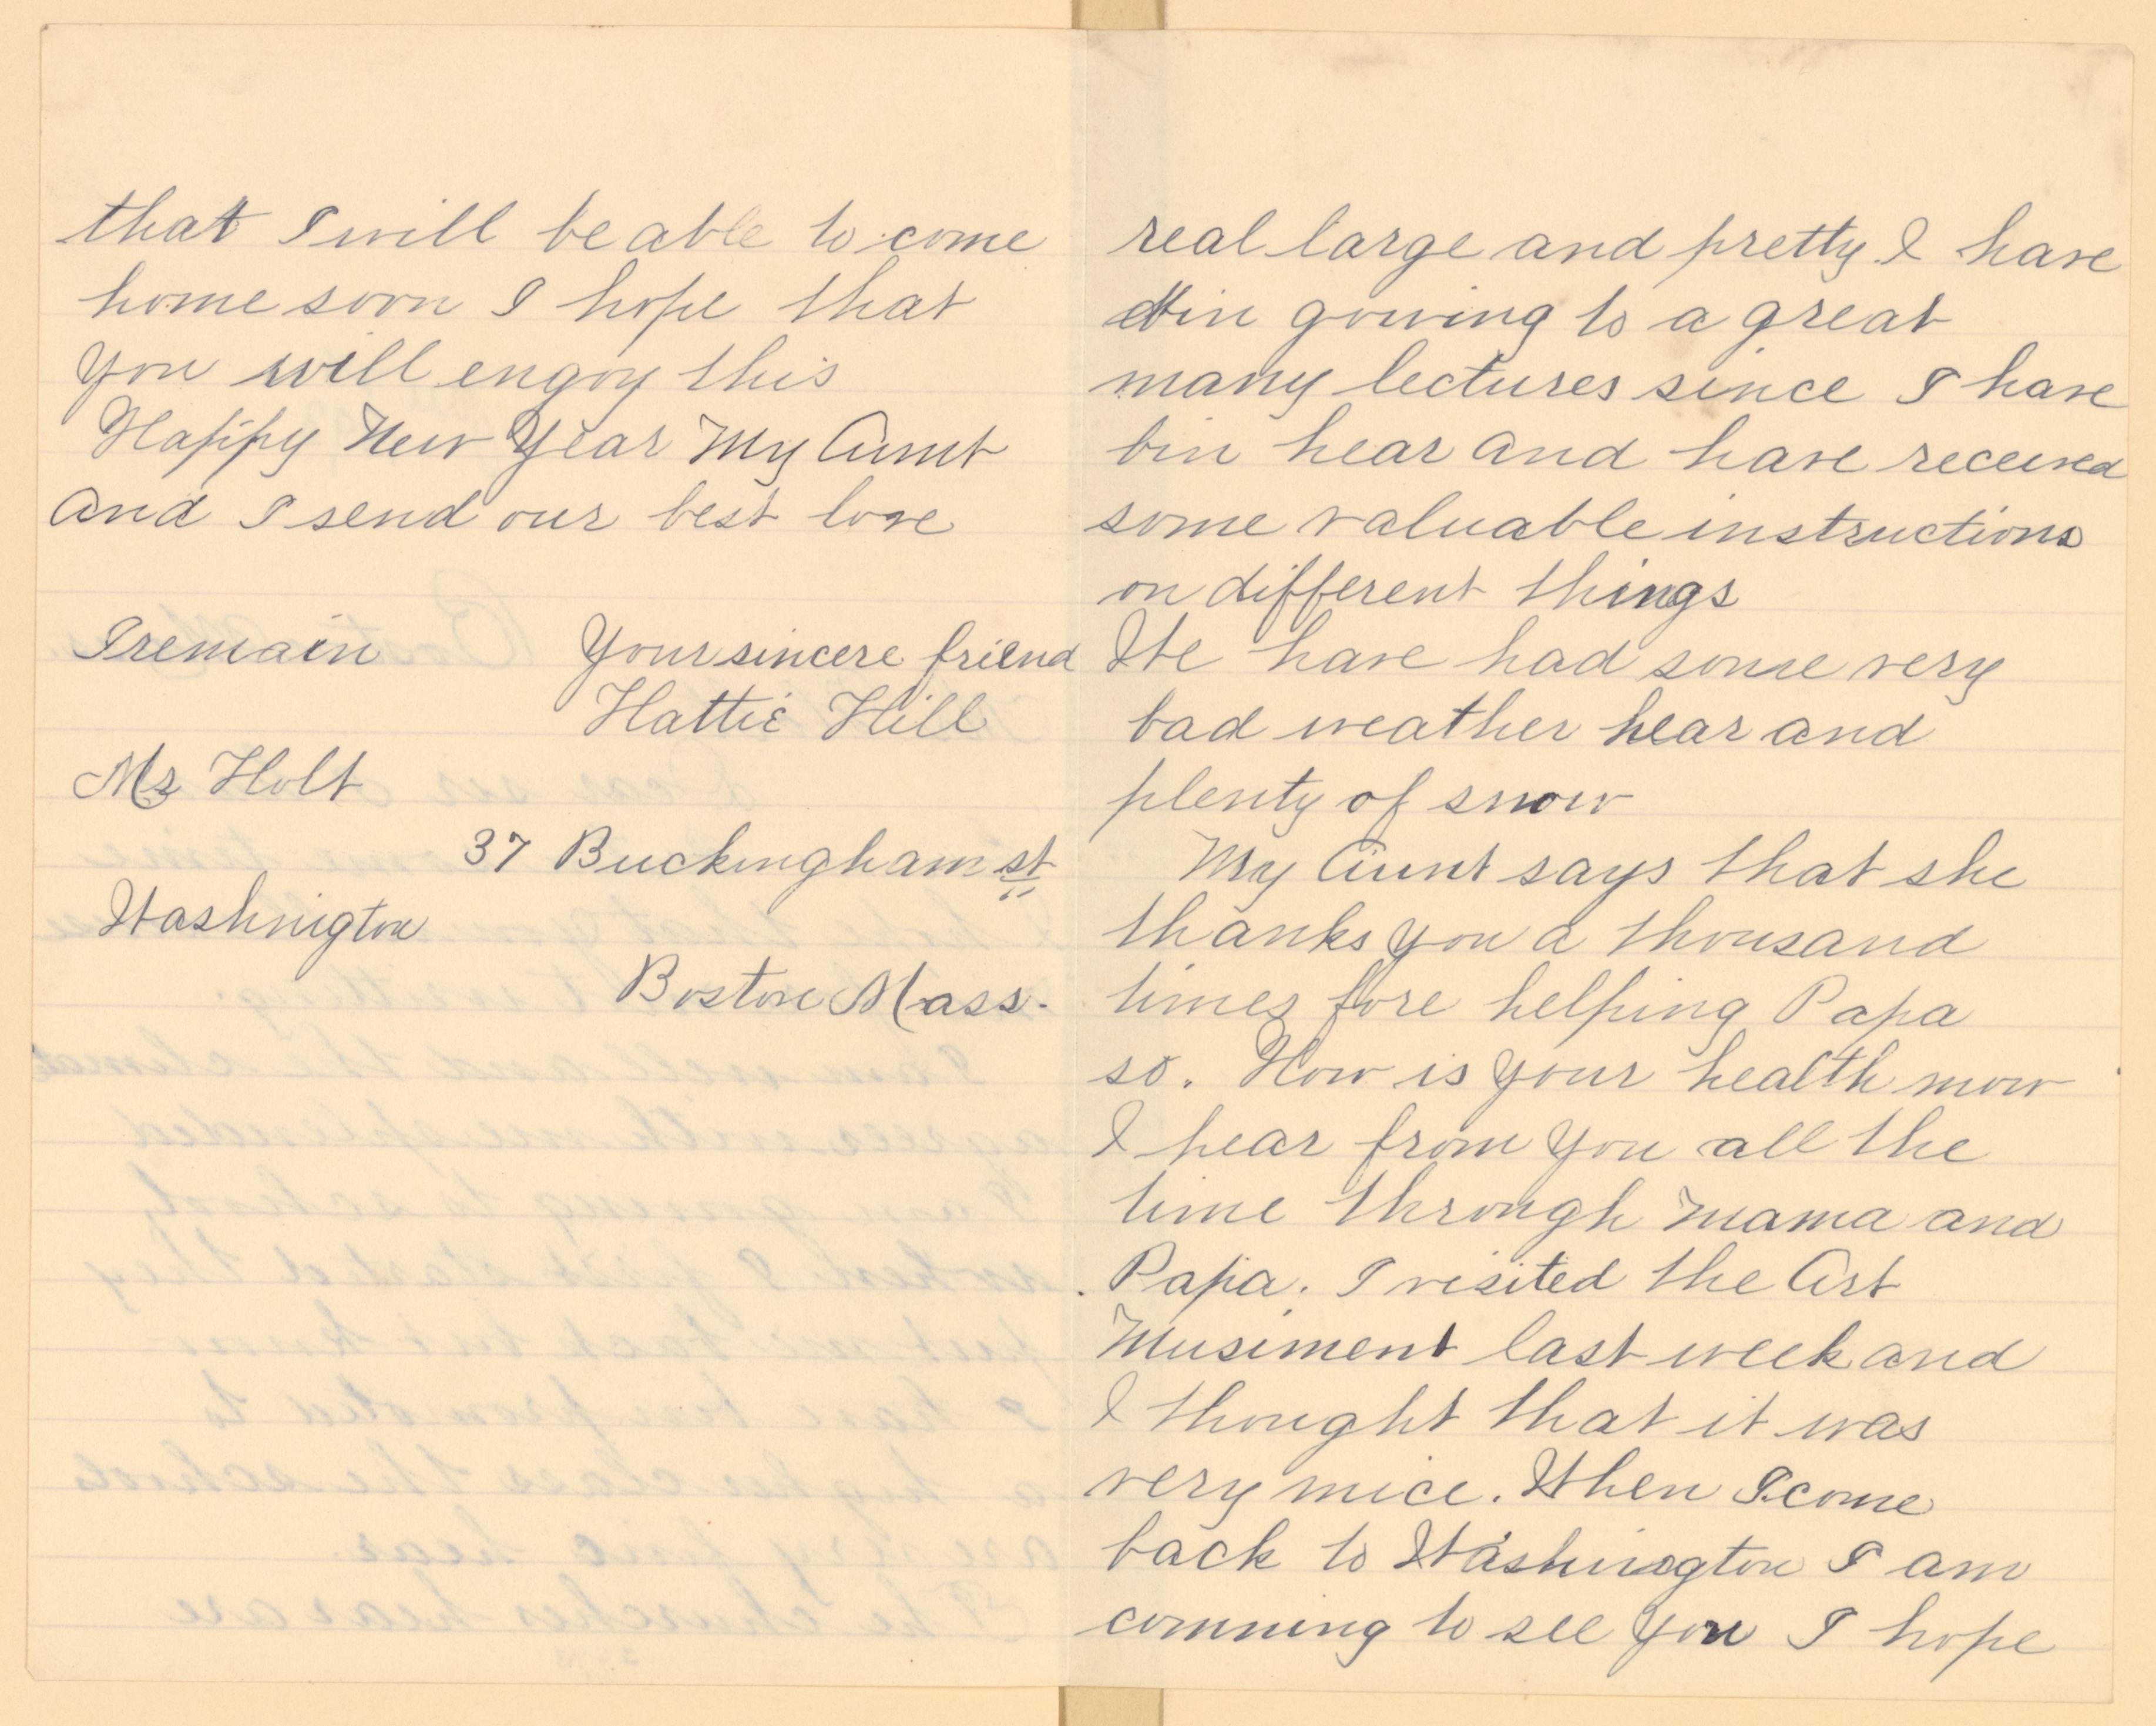 real large and pretty. I have
bin gowing to a great
many lectures since I have
bin hear and have received
some valuable instructions
on different things
We have had some very
bad weather hear and
plenty of snow
My Aunt says that she
thanks you a thousand
times fore helping Papa
so. How is your health now
I hear from you all the
time through mama and
Papa. I visited the Art
Musiment last week and
I thought that it was
very nice. When I come
back to Washington I am
comning to see you I hope
that I will be able to come
home soon I hope that
you will engoy this
Happy New Year My Aunt
and I send our best love
I remain Your sincere friend
Hattie Hill
Mr Holt
37 Buckingham st
Washington
Boston Mass.